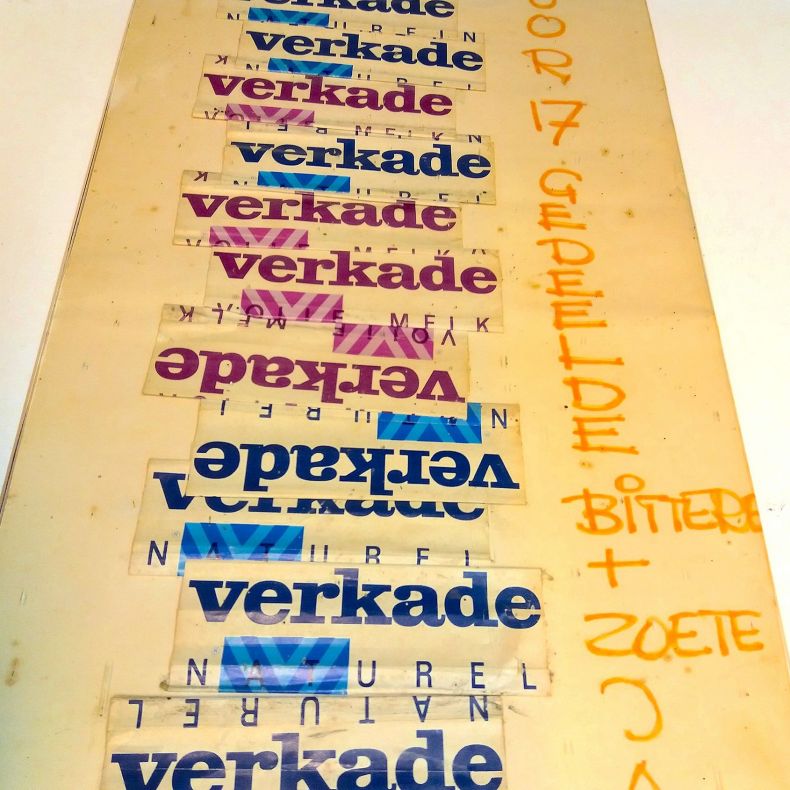 verkade
NATUREL
verkade
NATUREL
verkade
VOLLE MELK
verkade
NATUREL
verkade
VOLLE MELK
verkade
VOLLE MELK
VOLLE
verkade
NATUREL
verkade
verkade
NATUREL
verkade
NATUREL
NATUREL
verkade
OOR
17
GEDEELDE
BITTERE
+
ZOETE
JA